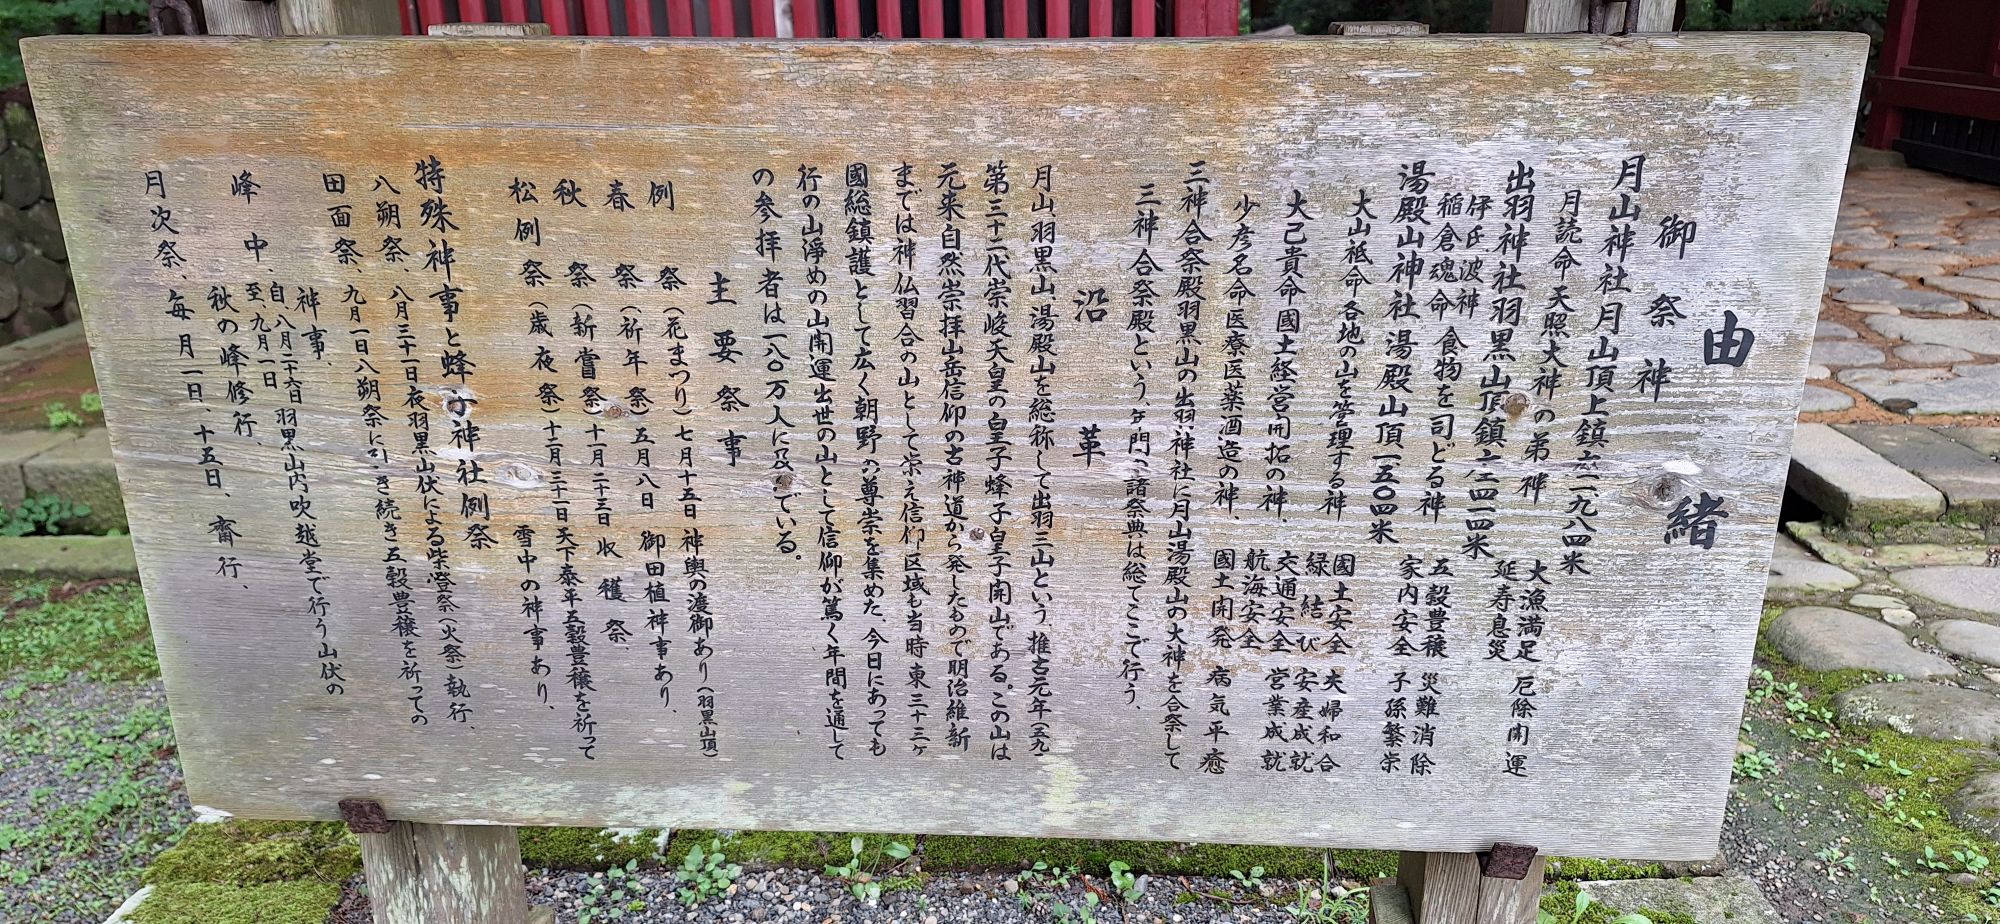 由緒
御祭神
月山神社月山頂上鎮一、九八四米
月読命天照大神の弟神 大漁満足 厄除開運
延寿息災
出羽神社羽黒山頂鎮 四一四米
伊氐波神
稲倉魂命 食物を司どる神 五穀豊穣 災難消除
家内安全 子孫繁栄
湯殿山神社湯殿山頂一五〇四米
大山祗命各地の山を管理する神 國土安全 夫婦和合
縁結び 安産成就
大己貴命國土経営開拓の神、 交通安全 営業成就
航海安全
少彦名命医療医薬酒造の神、 國土開発 病気平癒
三神合祭殿羽黒山の出羽神社に月山湯殿山の大神を合祭して
三神合祭殿という、 諸祭典は総てここで行う、
沿革
月山、羽黒山、湯殿山を総称して出羽三山という、推古元年(五九
第三十二代崇峻天皇の皇子蜂子皇子開山である。この山は
元来自然崇拝山岳信仰の古神道から発したもので明治維新
までは神仏習合の山として栄え信仰区域も当時東三十三ヶ
國総鎮護として広く朝野の尊崇を集めた、今日にあっても
行の山淨めの山開運出世の山として信仰が篤く年間を通して
の参拝者は一八〇万人に及んでいる。
主要祭事
例祭(花まつり)七月十五日 神輿の渡御あり(羽黒山頂)
春祭(祈年祭)五月八日 御田植神事あり、
秋祭(新嘗祭)十一月二十三日 収穫祭、
松例祭(歳夜祭)十二月三十一日 天下泰平五穀豊穣を祈って
雪中の神事あり、
特殊神事と蜂子神社例祭
八朔祭、八月三十一日夜羽黒山伏による柴燈祭(火祭)執行、
田面祭、九月一日八朔祭に引き続き五穀豊穣を祈っての
神事、
峰中、自、八月二十六日 羽黒山内吹越堂で行う山伏の
至、九月一日
秋の峰修行、
月次祭、毎月一日、十五日、齋行、